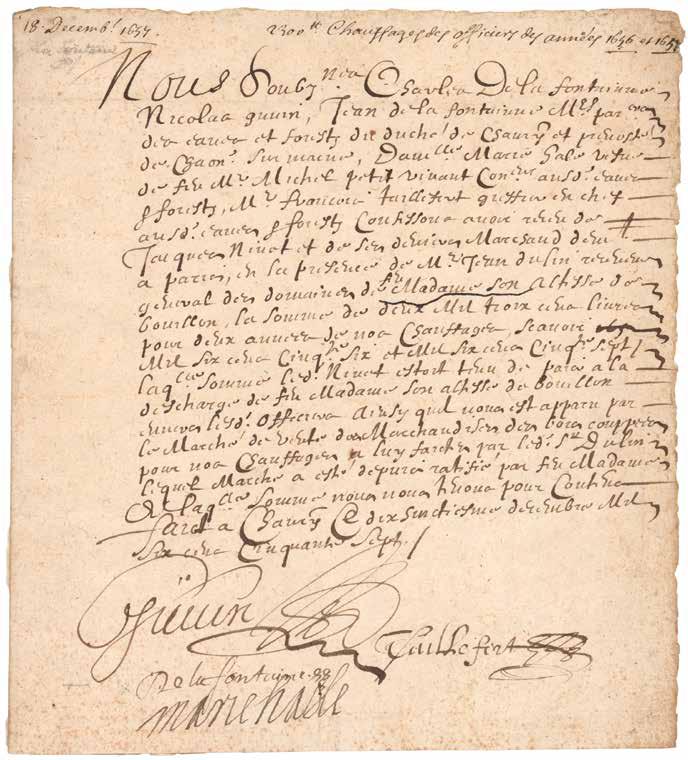 18. Decemb.^r 1657.
2300^tt Chauffages des officiers des années 1656 et 1657
la fontaine
Nous Soubz.^nez Charles De la fontainne
Nicolas guuin, Jean de la fontainne M.^es par^ers
des eaues et forestz du duché de Chaury et preuosté
de Chaon. sur marne, Dam^elle Marie hale vefue
de feu M.^e Michel petit vivant Con^er ausd. eaues
& forestz, M.^e francois taillefert greffier en chef
ausd. eaues & forestz Confessons auoir receu de
Jacques Ninet et de ses deniers Marchand deu.^t
a paris, en la presence de M.^e Jean dulin receueur
general des domaines de feue Madame son altesse de
bouillon, la somme de deux Mil trois cens liures
pour deux annees de nos Chauffages, scauoir
Mil six cens Cinq.^te six et Mil six cens Cinq.^te sept /
laq^lle somme led. Ninet estoit tenu de paier a la
descharge de feu Madame son altesse de bouillon
enuers lesd. officiers ainsy quil nous est apparu par
le Marché de vente des Marchandises des bois couppees
pour nos Chauffages a luy faictes par led. s.^r Dulin
lequel Marché a esté depuis ratifié par feu Madame
De laq^lle somme nous nous tenons pour Contens
faict a Chaury Ce dix huictiesme decembre Mil
six cens Cinquante sept. /
Guuin
Taillefert
De la fontaine
marie halle